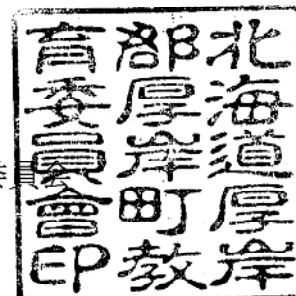 北海道厚岸
郡厚岸町教
育委員會印